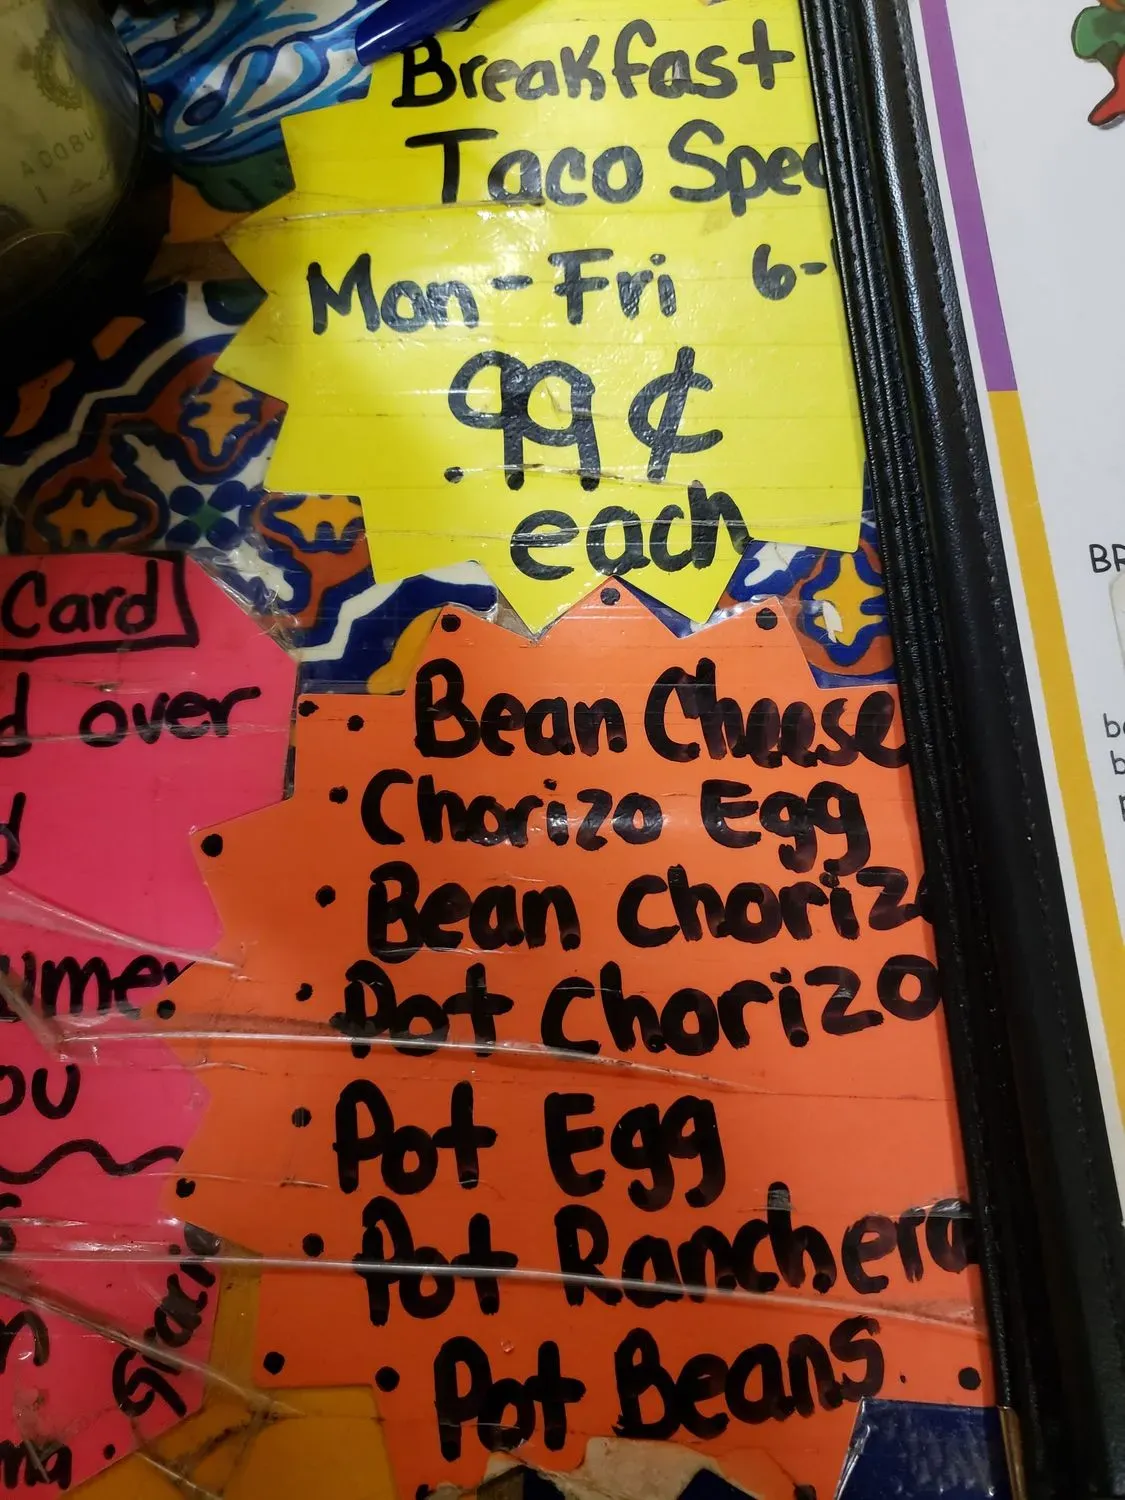 Breakfast
Taco Spec
Mon-Fri 6-
.99¢
each
Card
d over
d
umer
ou
Bean Cheese
Chorizo Egg
Bean Chorizo
Pot Chorizo
Pot Egg
Pot Ranchera
Pot Beans
BR